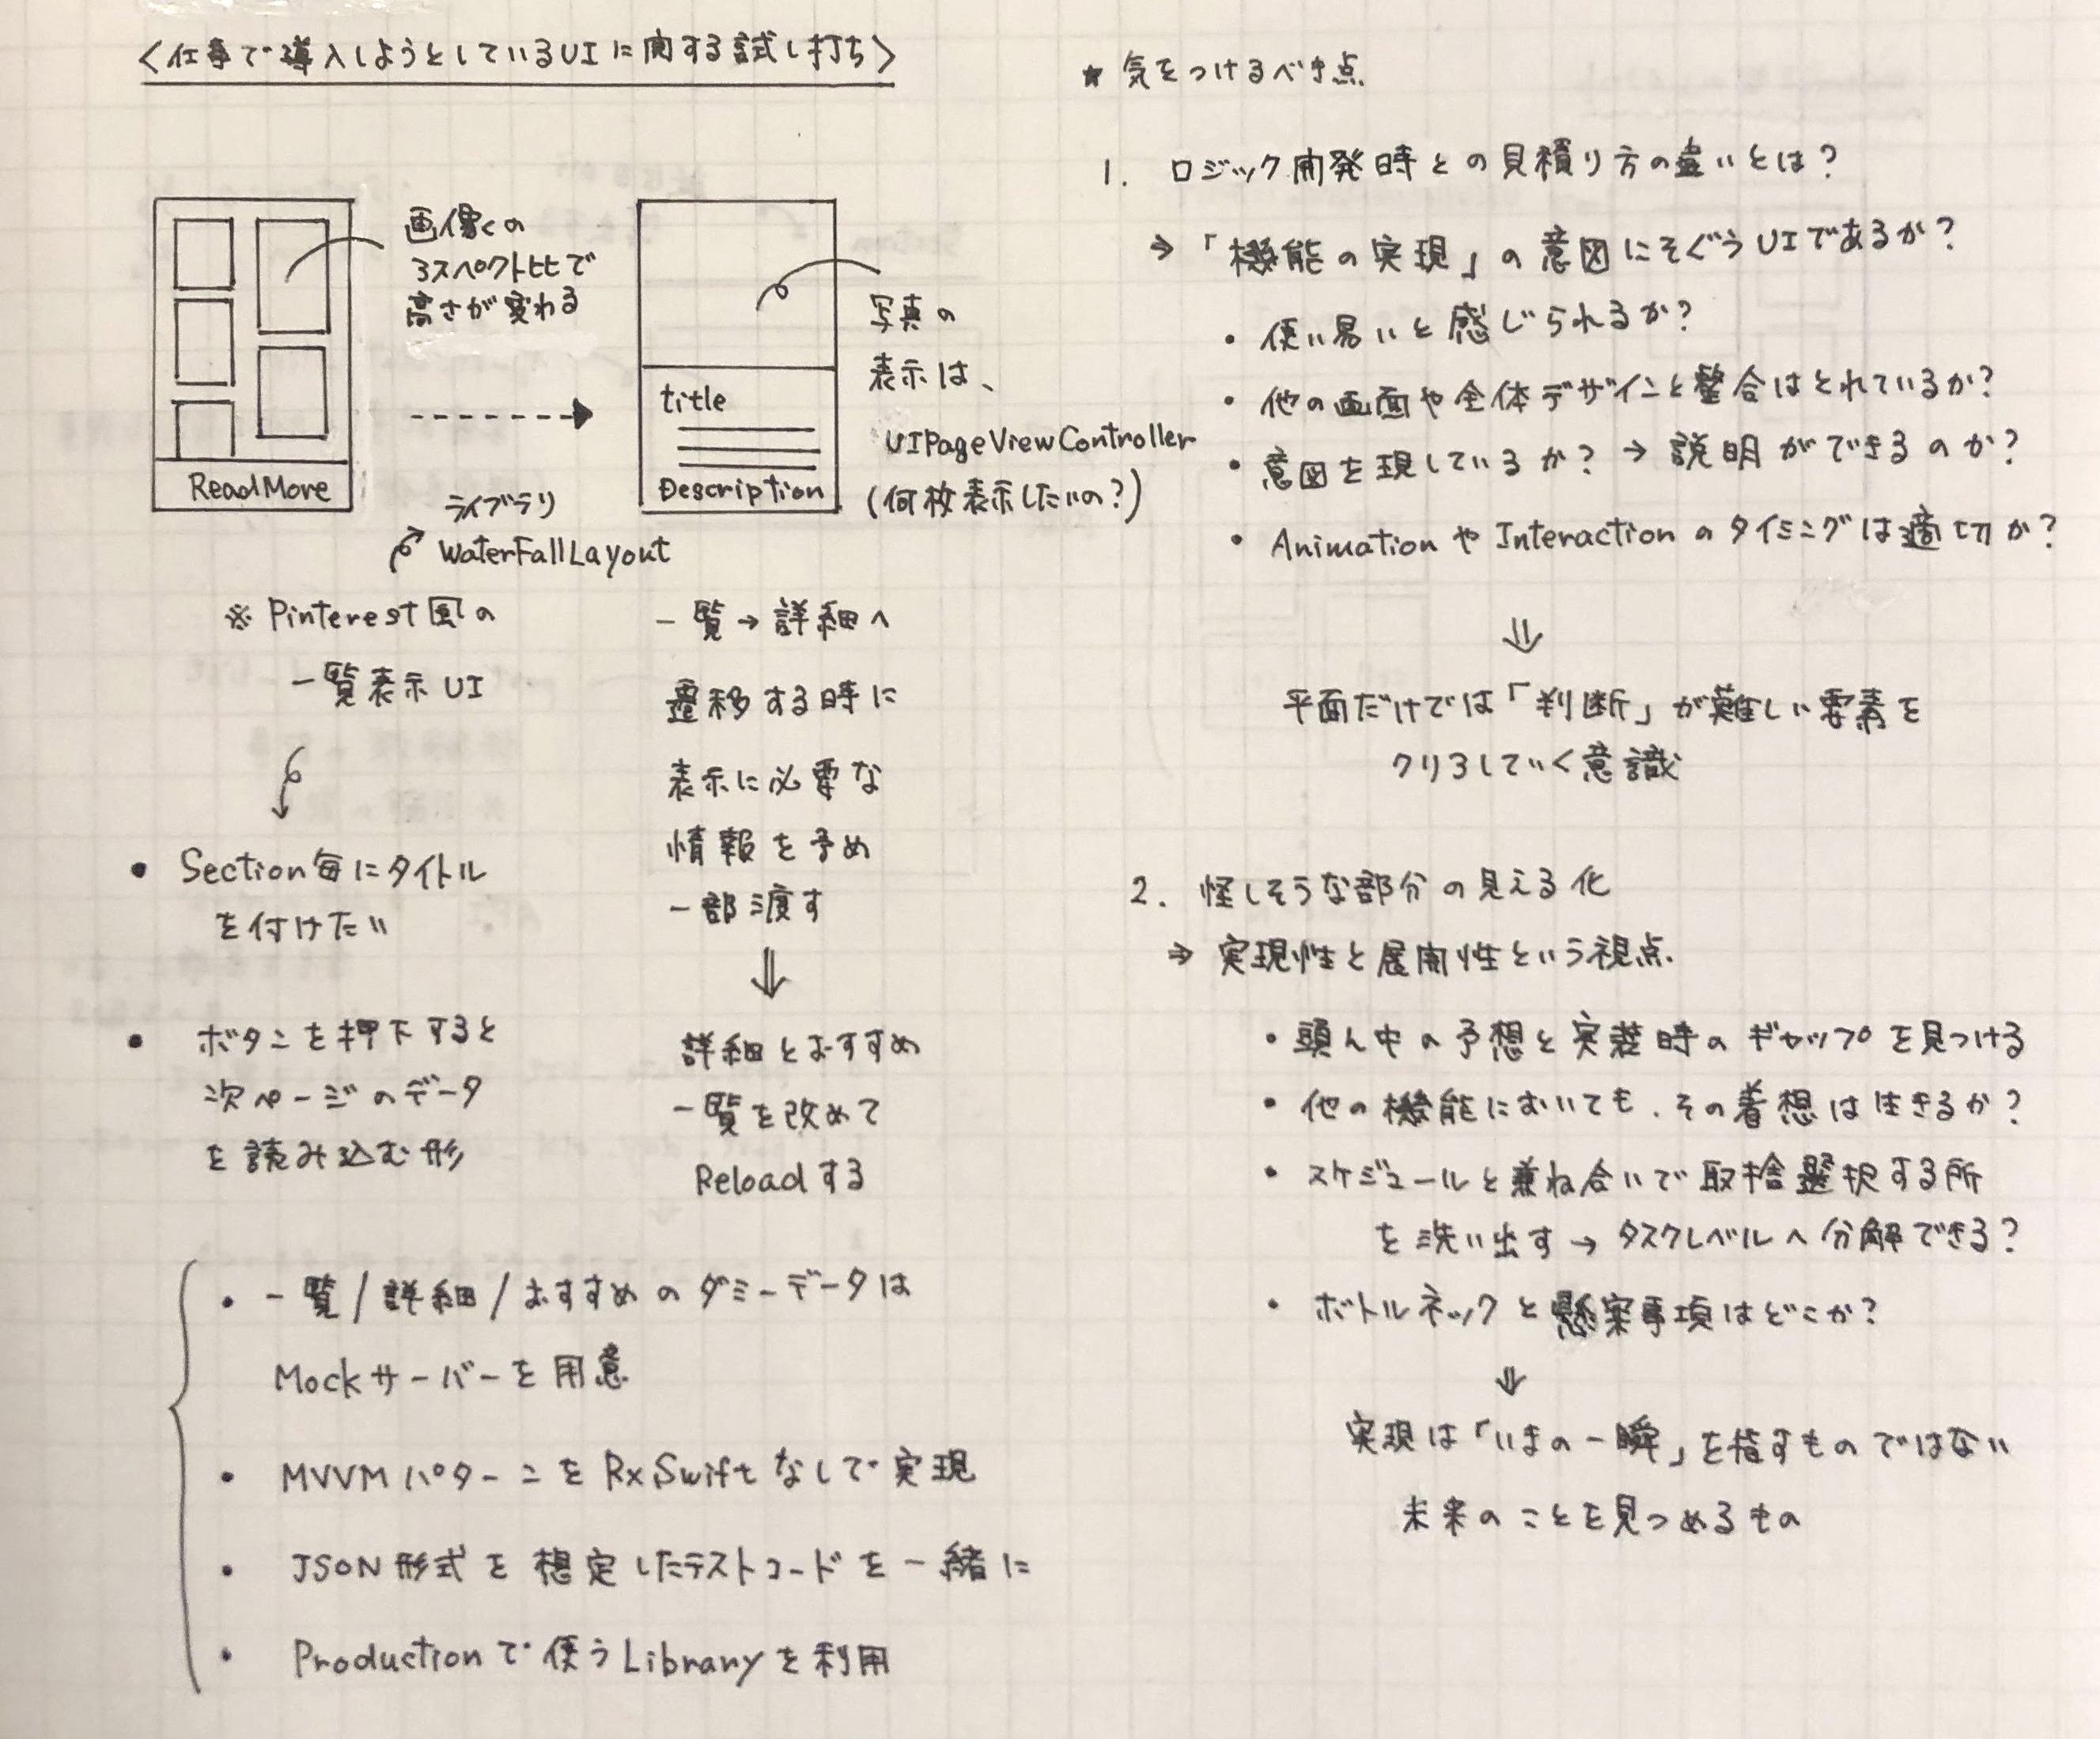 <仕事で導入しようとしているUIに関する試し打ち>
画像くの
アスペクト比で
高さが変わる
ReadMore
title
Description
写真の
表示は、
UIPageViewController
(何枚表示したいの?)
ライブラリ
WaterFallLayout
※ Pinterest風の
一覧表示UI
• Section毎にタイトル
を付けたい
• ボタンを押下すると
次ページのデータ
を読み込む形
一覧→詳細へ
遷移する時に
表示に必要な
情報を予め
一部渡す
⇓
詳細とおすすめ
一覧を改めて
Reloadする
• 一覧/詳細/おすすめのダミーデータは
Mockサーバーを用意
• MVVMパターンをRxSwiftなしで実現
• JSON形式を想定したテストコードを一緒に
• Productionで使うLibraryを利用
★ 気をつけるべき点
1. ロジック開発時との見積り方の違いとは?
⇒「機能の実現」の意図にそぐうUIであるか?
• 使い易いと感じられるか?
• 他の画面や全体デザインと整合はとれているか?
• 意図を現しているか? → 説明ができるのか?
• AnimationやInteractionのタイミングは適切か?
⇓
平面だけでは「判断」が難しい要素を
クリアしていく意識
2. 怪しそうな部分の見える化
⇒ 実現性と展開性という視点
• 頭ん中の予想と実装時のギャップを見つける
• 他の機能においても、その着想は生きるか?
• スケジュールと兼ね合いで取捨選択する所
を洗い出す → タスクレベルへ分解できる?
• ボトルネックと懸案事項はどこか?
⇓
実現は「いまの一瞬」を指すものではない
未来のことを見つめるもの